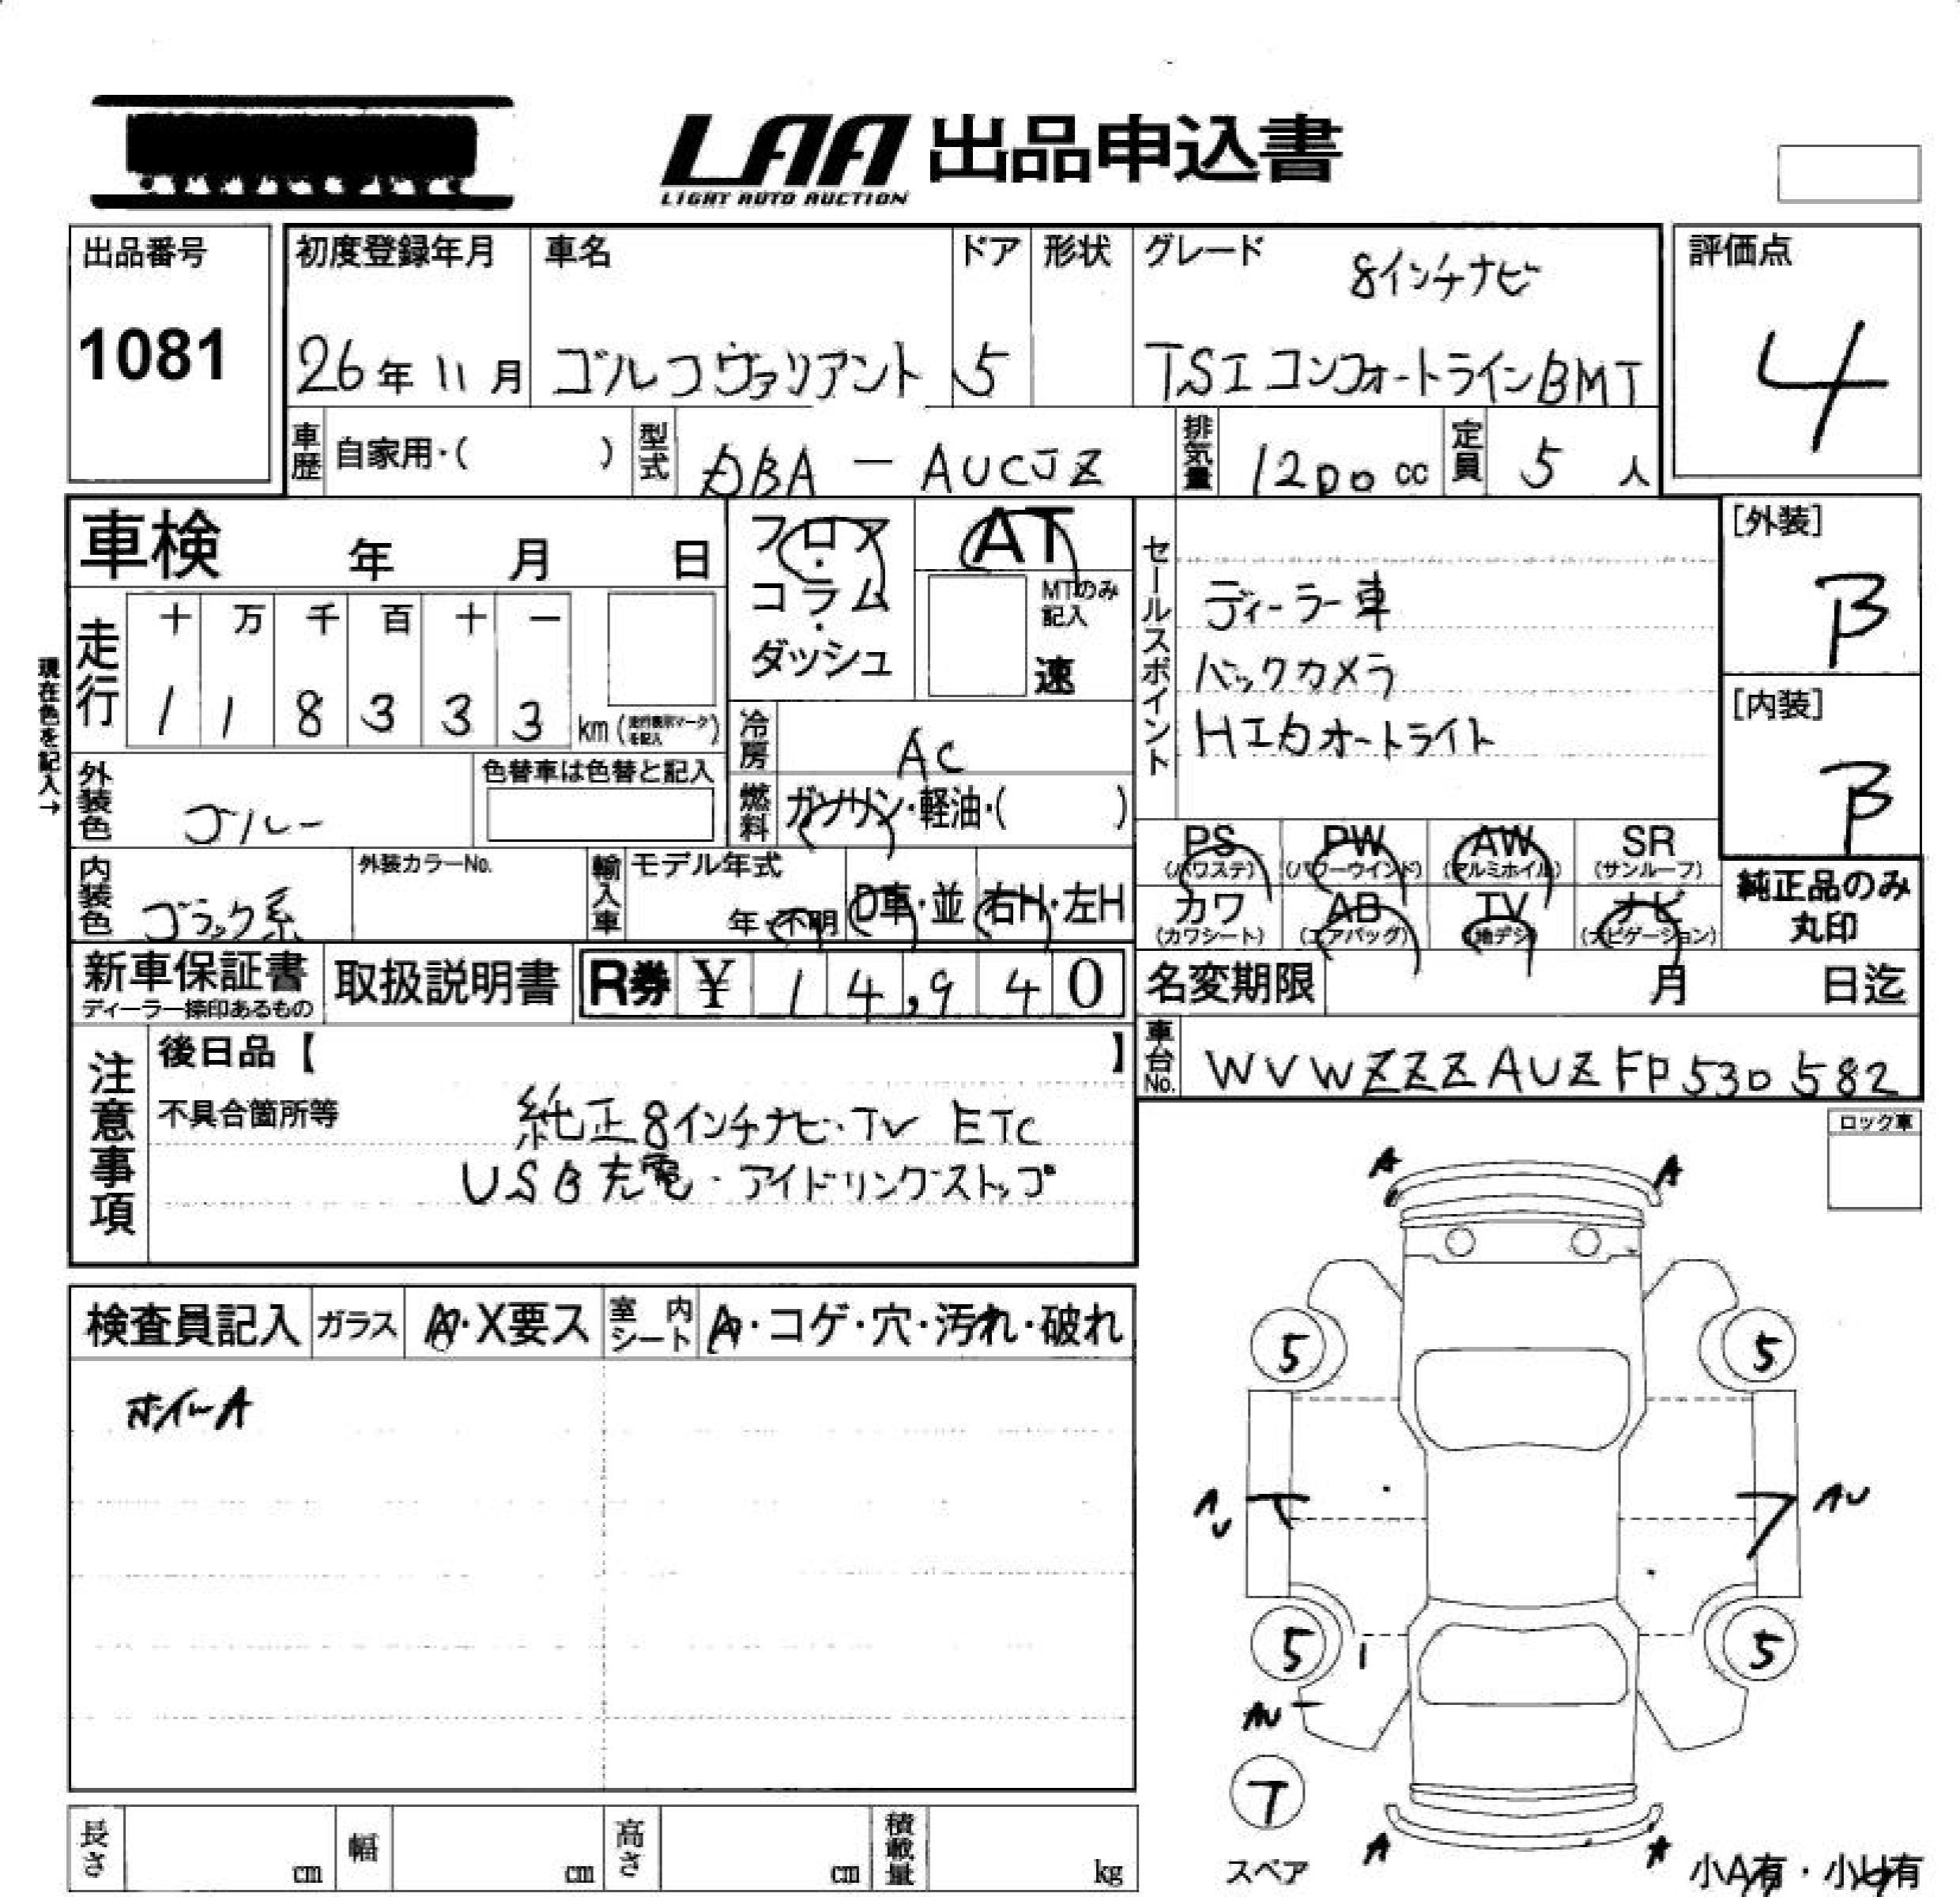 LAA 出品申込書
LIGHT AUTO AUCTION
出品番号
1081
初度登録年月
26年11月
車名
ゴルフヴァリアント
ドア
5
形状
グレード
8インチナビ
TSIコンフォートラインBMT
評価点
4
車歴 自家用・( )
型式 DBA-AUCJZ
排気量 1200cc
定員 5人
車検 年 月 日
フロア・コラム・ダッシュ
AT
MTのみ記入
速
セールスポイント
ディーラー車
バックカメラ
HIDオートライト
[外装]
B
[内装]
B
現在色を記入→
走行
十 万 千 百 十 一
1 1 8 3 3 3 km(走行表示マークを記入)
冷房 AC
燃料 ガソリン・軽油・( )
外装色 ブルー
色替車は色替と記入
内装色 ブラック系
外装カラーNo.
輸入車
モデル年式
年・不明
D車・並
右H・左H
PS
(パワステ)
PW
(パワーウインド)
AW
(アルミホイル)
SR
(サンルーフ)
カワ
(カワシート)
AB
(エアバッグ)
TV
(地デジ)
ナビ
(ナビゲーション)
純正品のみ
丸印
新車保証書
ディーラー捺印あるもの
取扱説明書
R券 ¥ 14,940
名変期限 月 日迄
車台No. WVWZZZAUZFP530582
注意事項
後日品【 】
不具合箇所等
純正8インチナビ・TV ETC
USB充電・アイドリングストップ
ロック車
検査員記入
ガラス A・X要ス
室内シート A・コゲ・穴・汚れ・破れ
ホイールA
A A
5 5
AU
5 5
AU
T
スペア
A A
小A有・小U有
長さ cm
幅 cm
高さ cm
積載量 kg